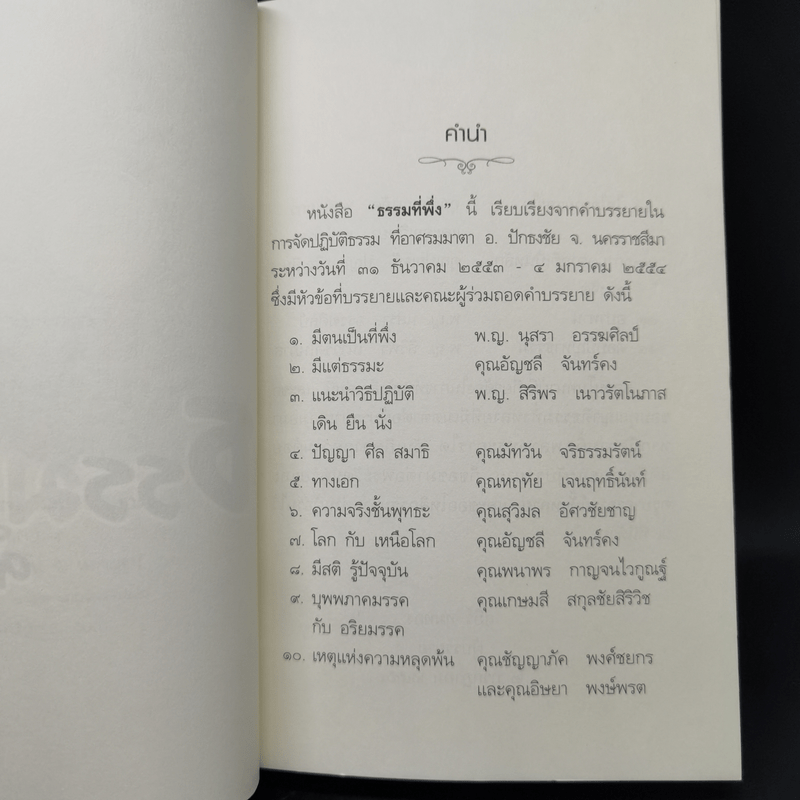 คำนำ
หนังสือ “ธรรมที่พึ่ง” นี้ เรียบเรียงจากคำบรรยายใน
การจัดปฏิบัติธรรม ที่อาศรมมาตา อ. ปักธงชัย จ. นครราชสีมา
ระหว่างวันที่ ๓๑ ธันวาคม ๒๕๕๓ - ๔ มกราคม ๒๕๕๔
ซึ่งมีหัวข้อที่บรรยายและคณะผู้ร่วมถอดคำบรรยาย ดังนี้
๑. มีตนเป็นที่พึ่ง พ.ญ. นุสรา อรรฆศิลป์
๒. มีแต่ธรรมะ คุณอัญชลี จันทร์คง
๓. แนะนำวิธีปฏิบัติ พ.ญ. สิริพร เนาวรัตโนภาส
เดิน ยืน นั่ง
๔. ปัญญา ศีล สมาธิ คุณมัทวัน จริธรรมรัตน์
๕. ทางเอก คุณหฤทัย เจนฤทธิ์นันท์
๖. ความจริงชั้นพุทธะ คุณสุวิมล อัศวชัยชาญ
๗. โลก กับ เหนือโลก คุณอัญชลี จันทร์คง
๘. มีสติ รู้ปัจจุบัน คุณพนาพร กาญจนไวกูณฐ์
๙. บุพพภาคมรรค คุณเกษมสี สกุลชัยสิริวิช
กับ อริยมรรค
๑๐. เหตุแห่งความหลุดพ้น คุณชัญญาภัค พงศ์ชยกร
และคุณอิษยา พงษ์พรต